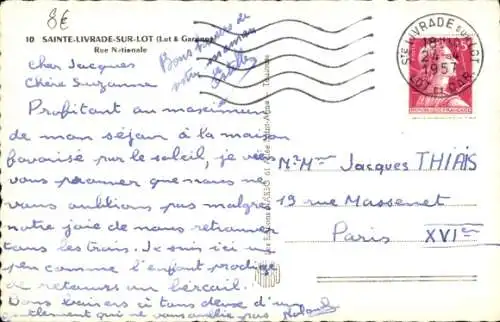 8€
10 SAINTE-LIVRADE-SUR-LOT (Lot & Garonne)
Rue Nationale
Bons baisers de
votre maman
Cher Jacques
Chère Suzanne
Profitant au maximum
de mon séjour à la maison
favorisé par le soleil, je veux
vous prouver que nous ne
vous oublions pas malgré
notre joie de nous retrouver
tous les trois. Je suis ici un
peu comme l'enfant prodigue
de retour au bercail.
Bons baisers à tous deux d'un
qui ne vous oublie pas Roland
STE LIVRADE SUR LOT
1957
LOT ET GAR.
M. Mme Jacques THIAIS
19 rue Massenet
Paris XVIe